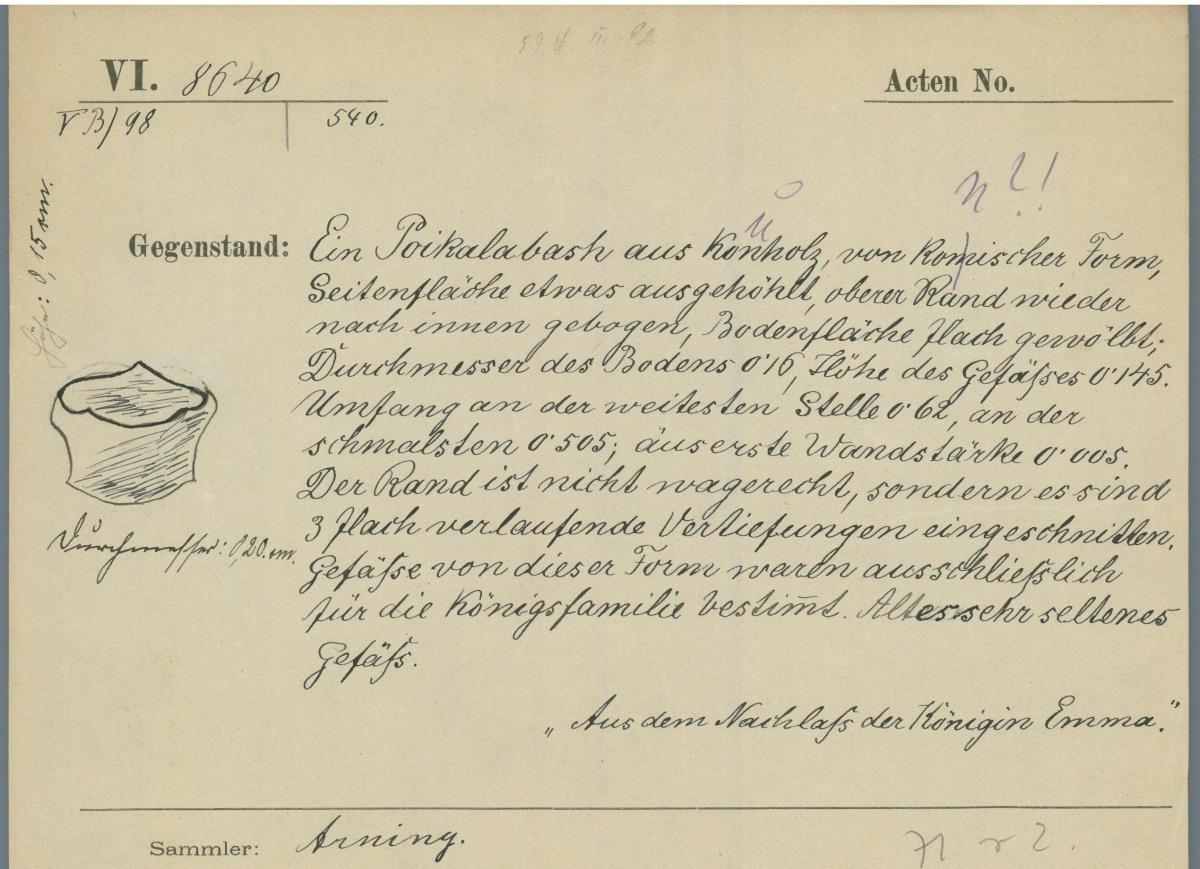 VI. 8640
Acten No.
VB/98
540.
n ?!
u
Höhe: 0,15 cm.
Gegenstand: Ein Poikalabash aus Konholz, von komischer Form,
Seitenfläche etwas ausgehöhlt, oberer Rand wieder
nach innen gebogen, Bodenfläche flach gewölbt;
Durchmesser des Bodens 0'16, Höhe des Gefäſses 0'145.
Umfang an der weitesten Stelle 0'62, an der
schmalsten 0'505; äuserste Wandstärke 0'005.
Der Rand ist nicht wagerecht, sondern es sind
3 flach verlaufende Vertiefungen eingeschnitten.
Durchmesser: 0,20 cm.
Gefäſse von dieser Form waren ausschlieſslich
für die Königsfamilie bestim̅t. Altes sehr seltenes
Gefäſs.
„Aus dem Nachlaſs der Königin Emma."
Sammler: Arning.